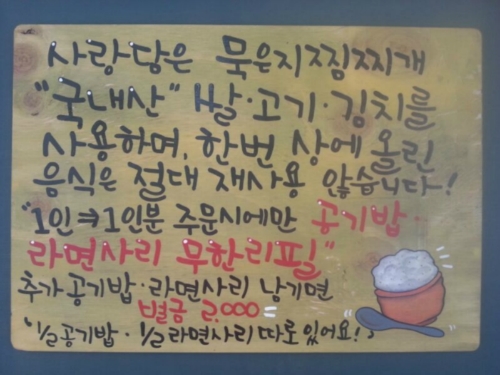 사랑당은 묵은지찜찌개
"국내산" 쌀·고기·김치를
사용하며, 한번 상에 올린
음식은 절대 재사용 않습니다!
"1인⇒1인분 주문시에만 공기밥·
라면사리 무한리필"
추가공기밥·라면사리 남기면
벌금 2,000=
"1/2공기밥·1/2라면사리 따로있어요!"